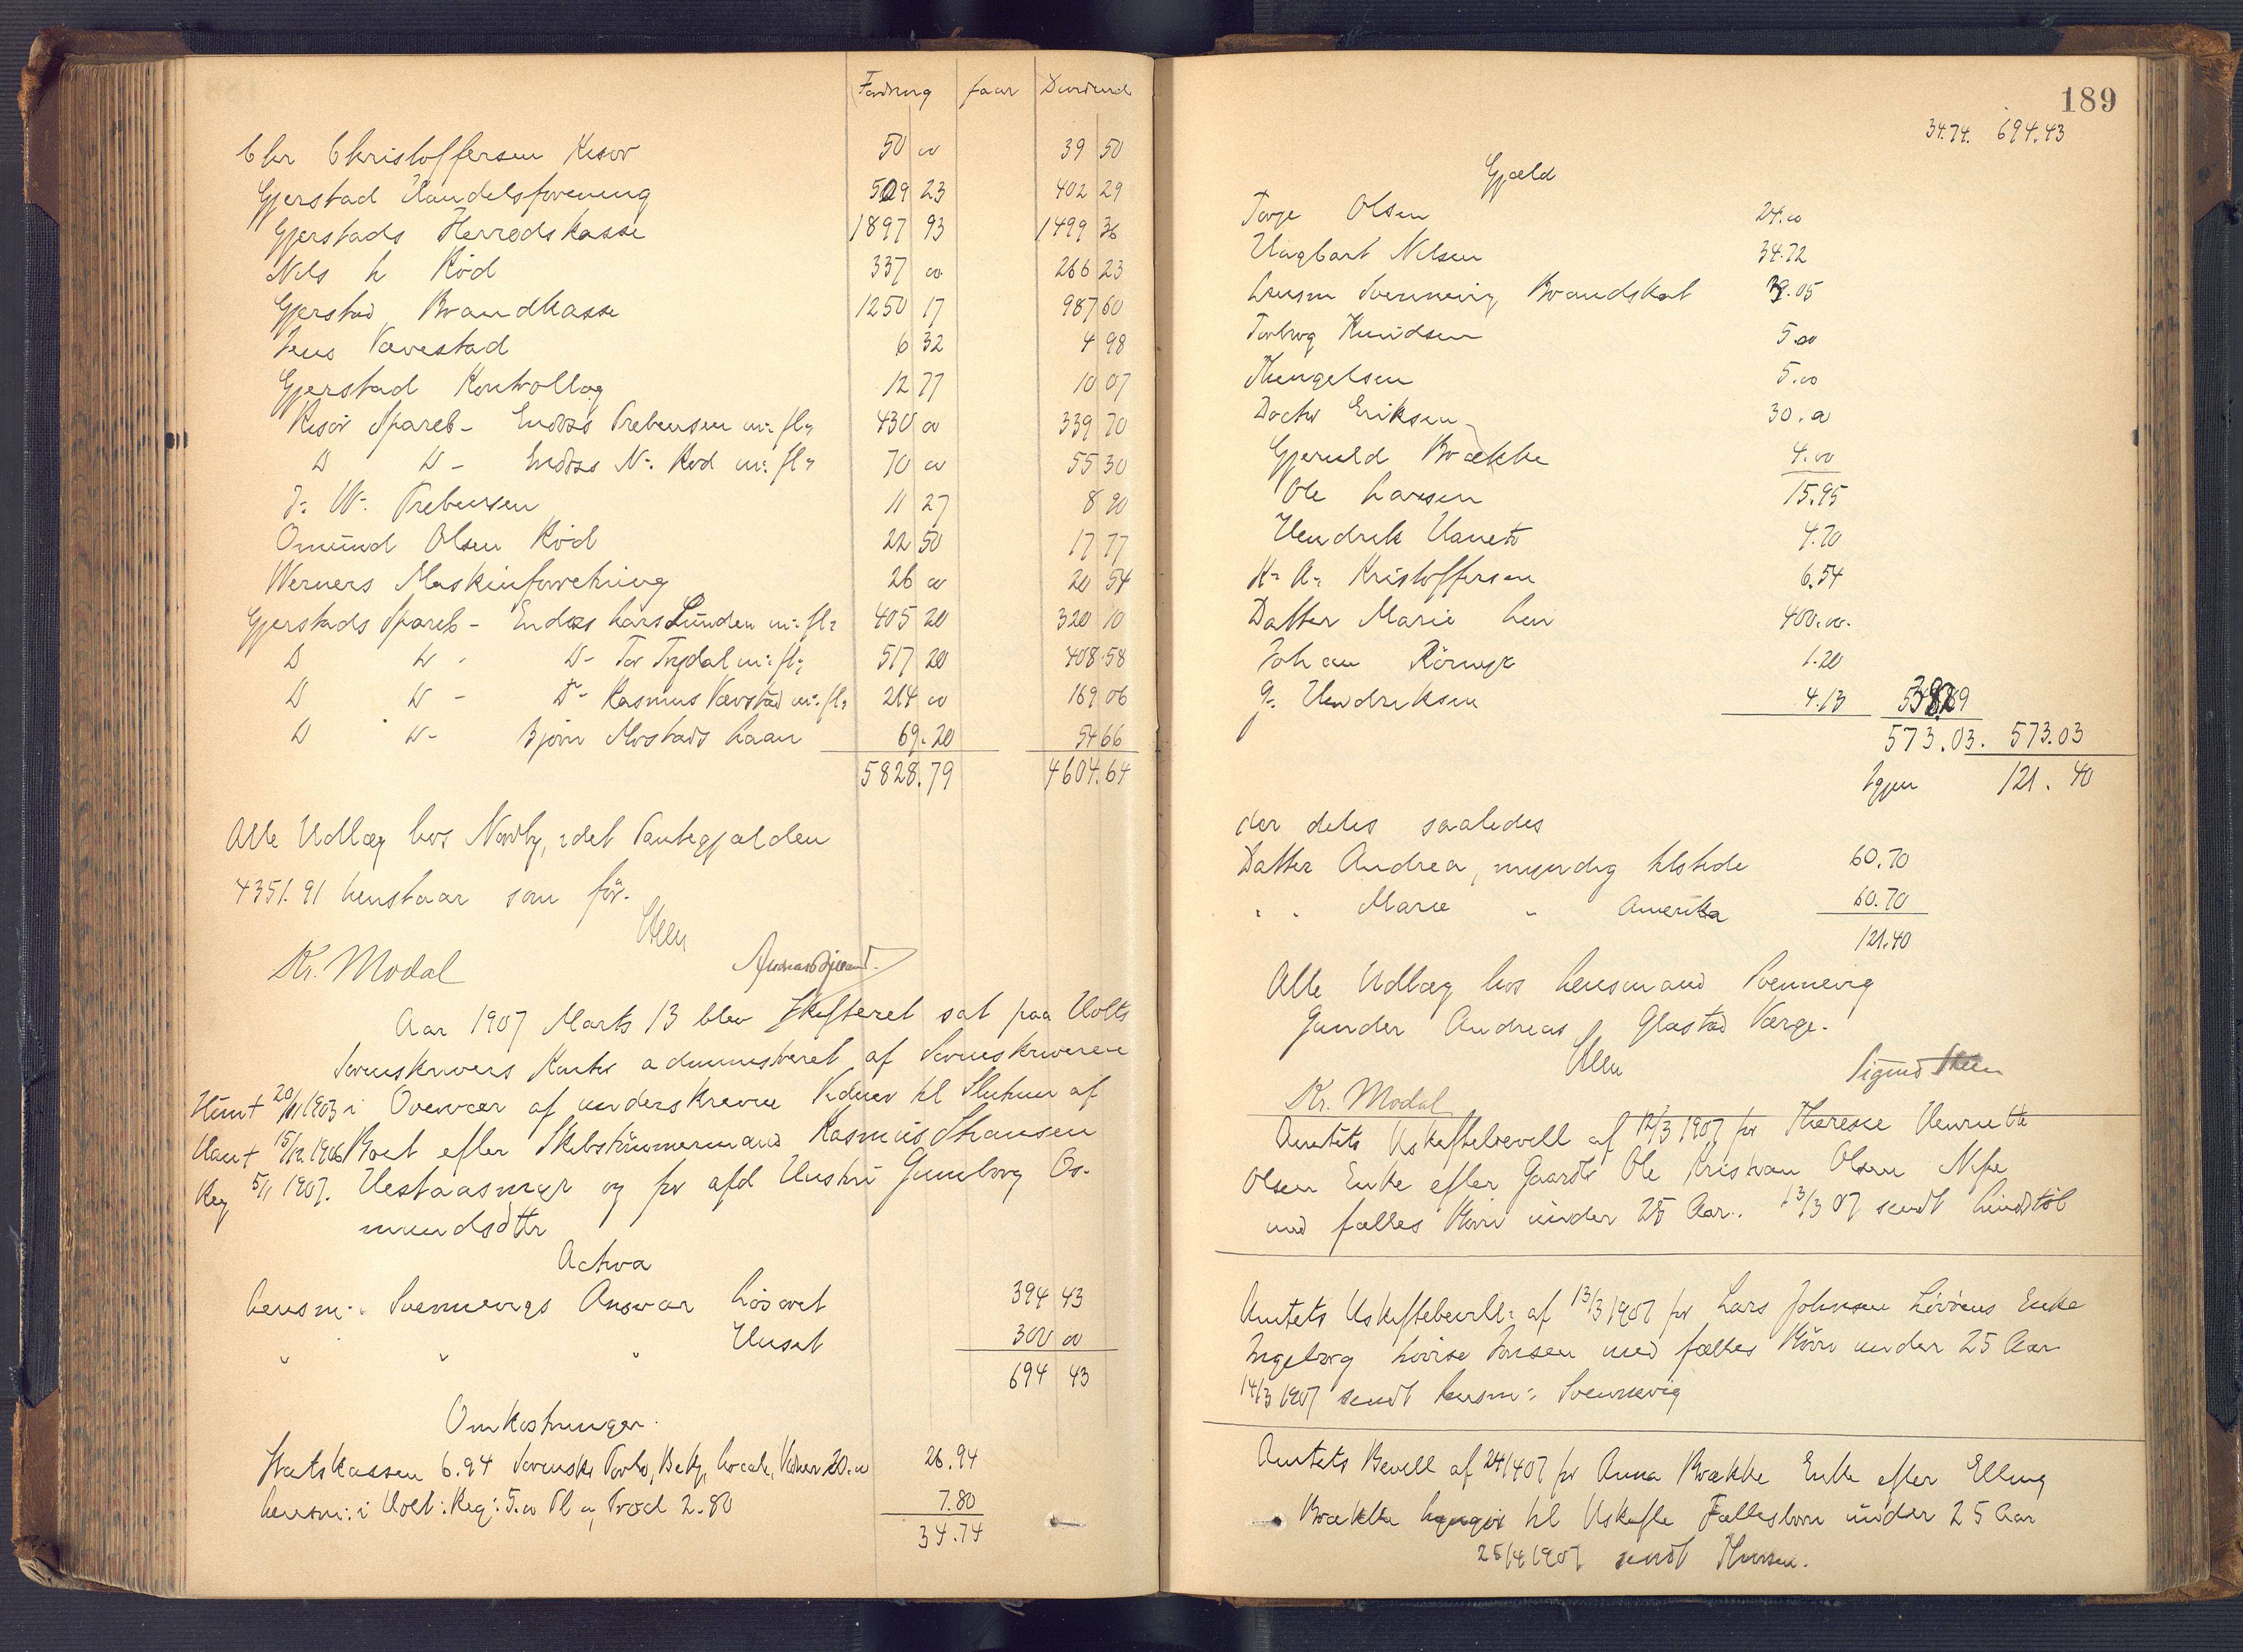 Fordring faar Dividende
Chr Christoffersen Risør 50 00 39 50
Gjerstad Handelsforening 509 23 402 29
Gjerstads Herredskasse 1897 93 1499 36
Nils L Rød 337 00 266 23
Gjerstad Brandkasse 1250 17 987 60
Jens Vævestad 6 32 4 98
Gjerstad Kontrollag 12 77 10 07
Risør Spareb- Endoss Prebensen m: fl: 430 00 339 70
D D - Endoss N: Rød m: fl: 70 00 55 30
J: W: Prebensen 11 27 8 90
Omund Olsen Rød 22 50 17 77
Werners Maskinforretning 26 00 20 54
Gjerstads Spareb - Endoss Lars Lunden m: fl: 405 20 320 10
D D - D- Tor Trydal m: fl: 517 20 408.58
D D - D- Rasmus Vævstad m: fl: 214 00 169 06
D D- Bjørn Mostads Laan 69.20 54 66
5828.79 4604.64
Alle Udlæg hos Nordby, idet Pantegjælden
4351.91 henstaar som før.
Kr. Modal
Aar 1907 Marts 13 blev Skifteret sat paa Holts
Sorenskrivers Kontor administreret af Sorenskriveren
Hun + 20/11 1903 i Overvær af underskrevne Vidner til Slutning af
Han + 15/12 1906 Boet efter Skibstømmermand Rasmus Hansen
Reg 5/1 1907. Hestaasmyr og for afd Hustru Gunborg Os-
mundsdtr
Activa
Lensm: Svennevigs Ansvar Løsøret 394 43
" " " Huset 300 00
694 43
Omkostninger.
Statskassen 6.94 Sorenskr Porto, Bekj, Locale, Vidner 20.00 26.94
Lensm: i Holt: Reg: 5.00 Pl og Prod 2.80 7.80
34.74
189
34.74. 694.43
Gjæld
Torje Olsen 24.00
Hagbart Nilsen 34.72
Lensm Svennevig Brandskat 39.05
Torborg Knudsen 5.00
Thengelsen 5.00
Doctor Eriksen 30.00
Gjeruld Brække 4.00
Ole Larsen 15.95
Hendrik Haneto 4.70
K: A: Kristoffersen 6.54
Datter Marie Løn 400.00.
Johan Rørmyr 1.20
G. Hendriksen 4.13
573.03. 573.03
Igjen 121. 40
der deles saaledes
Datter Andrea, myndig tilstede 60.70
" " Marie " Amerika 60.70
121.40
Alle Udlæg hos Lensmand Svennevig
Gunder Andreas Glastad Værge.
Sigurd Steen
Kr. Modal
Amtets Uskiftebevill af 12/3 1907 for Therese Henriette
Olsen Enke efter Gaardbr Ole Kristian Olsen Nipe
med fælles Børn under 25 Aar. 13/3 07 sendt Lindtøl
Amtets Uskiftebevill: af 13/3 1907 for Lars Johnsen Løvdens Enke
Ingeborg Lovise Jonsen med fælles Børn under 25 Aar
14/3 1907 sendt Lensm: Svennevig
Amtets Bevill af 24/4 07 for Anna Brække Enke efter Elling
Brække til Uskifte Fællesbørn under 25 Aar
25/4 1907 sendt